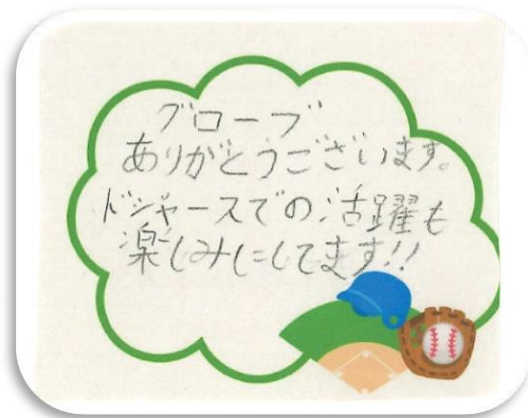 グローブ
ありがとうございます。
ドジャースでの活躍も
楽しみにしてます!!